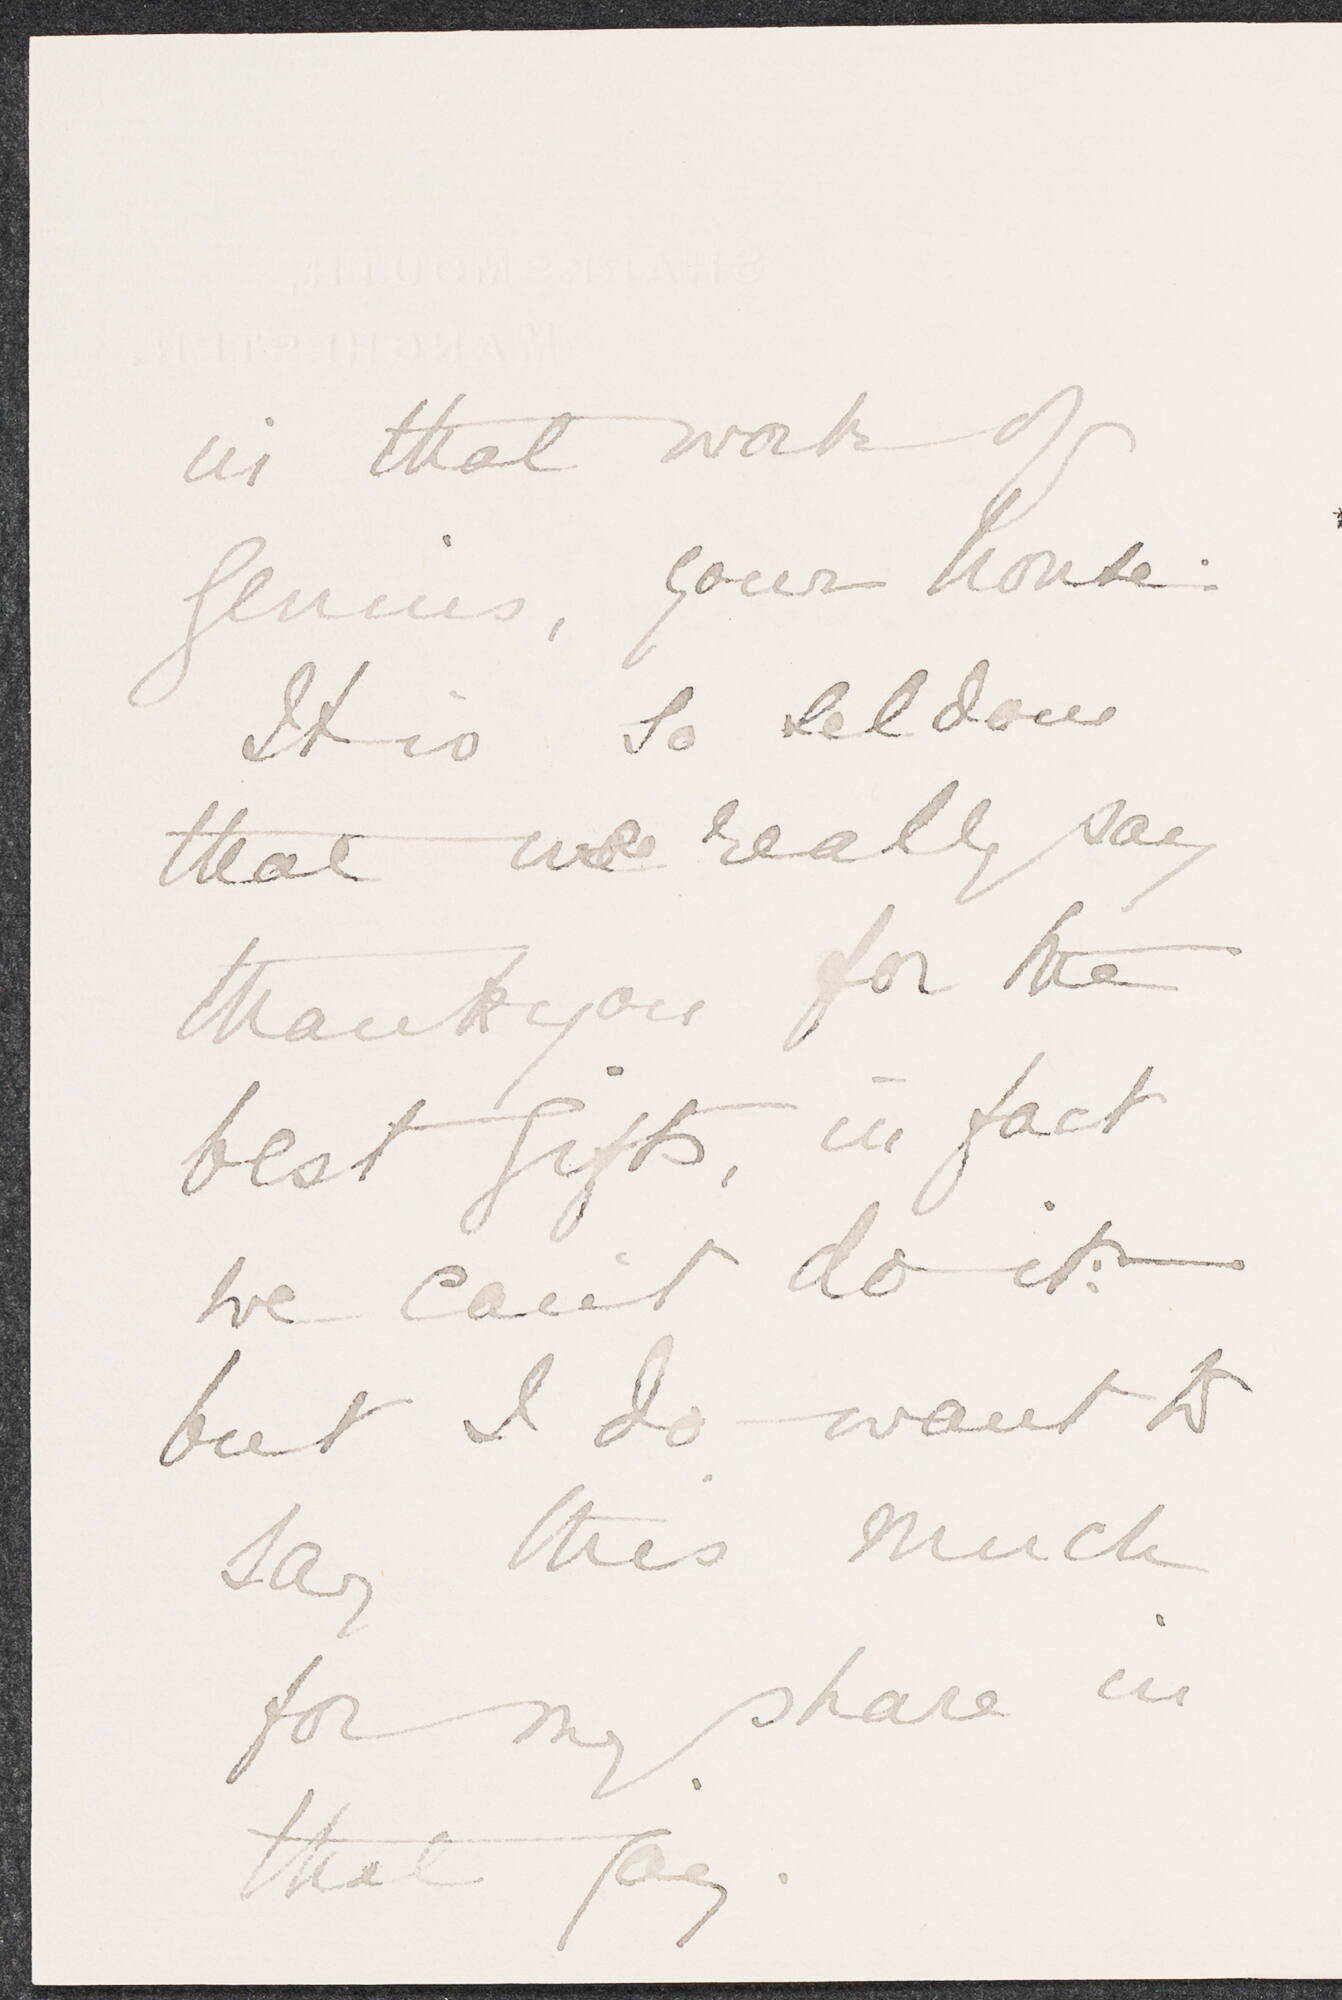 SHARKSMOUTH,
MANCHESTER.
in that work of
Genius, your house.
It is so seldom
that we really say
thankyou for the
best gifts, in fact
we can't do it:—
but I do want to
say this much
for my share in
that joy.